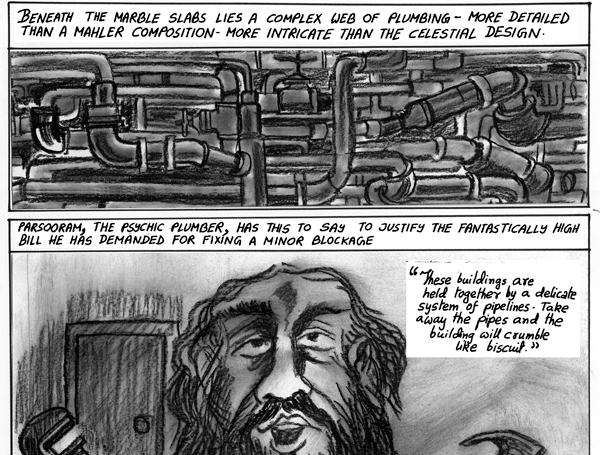 BENEATH THE MARBLE SLABS LIES A COMPLEX WEB OF PLUMBING - MORE DETAILED
THAN A MAHLER COMPOSITION - MORE INTRICATE THAN THE CELESTIAL DESIGN.
PARSOORAM, THE PSYCHIC PLUMBER, HAS THIS TO SAY TO JUSTIFY THE FANTASTICALLY HIGH
BILL HE HAS DEMANDED FOR FIXING A MINOR BLOCKAGE
"These buildings are
held together by a delicate
system of pipelines. Take
away the pipes and the
building will crumble
like biscuit."